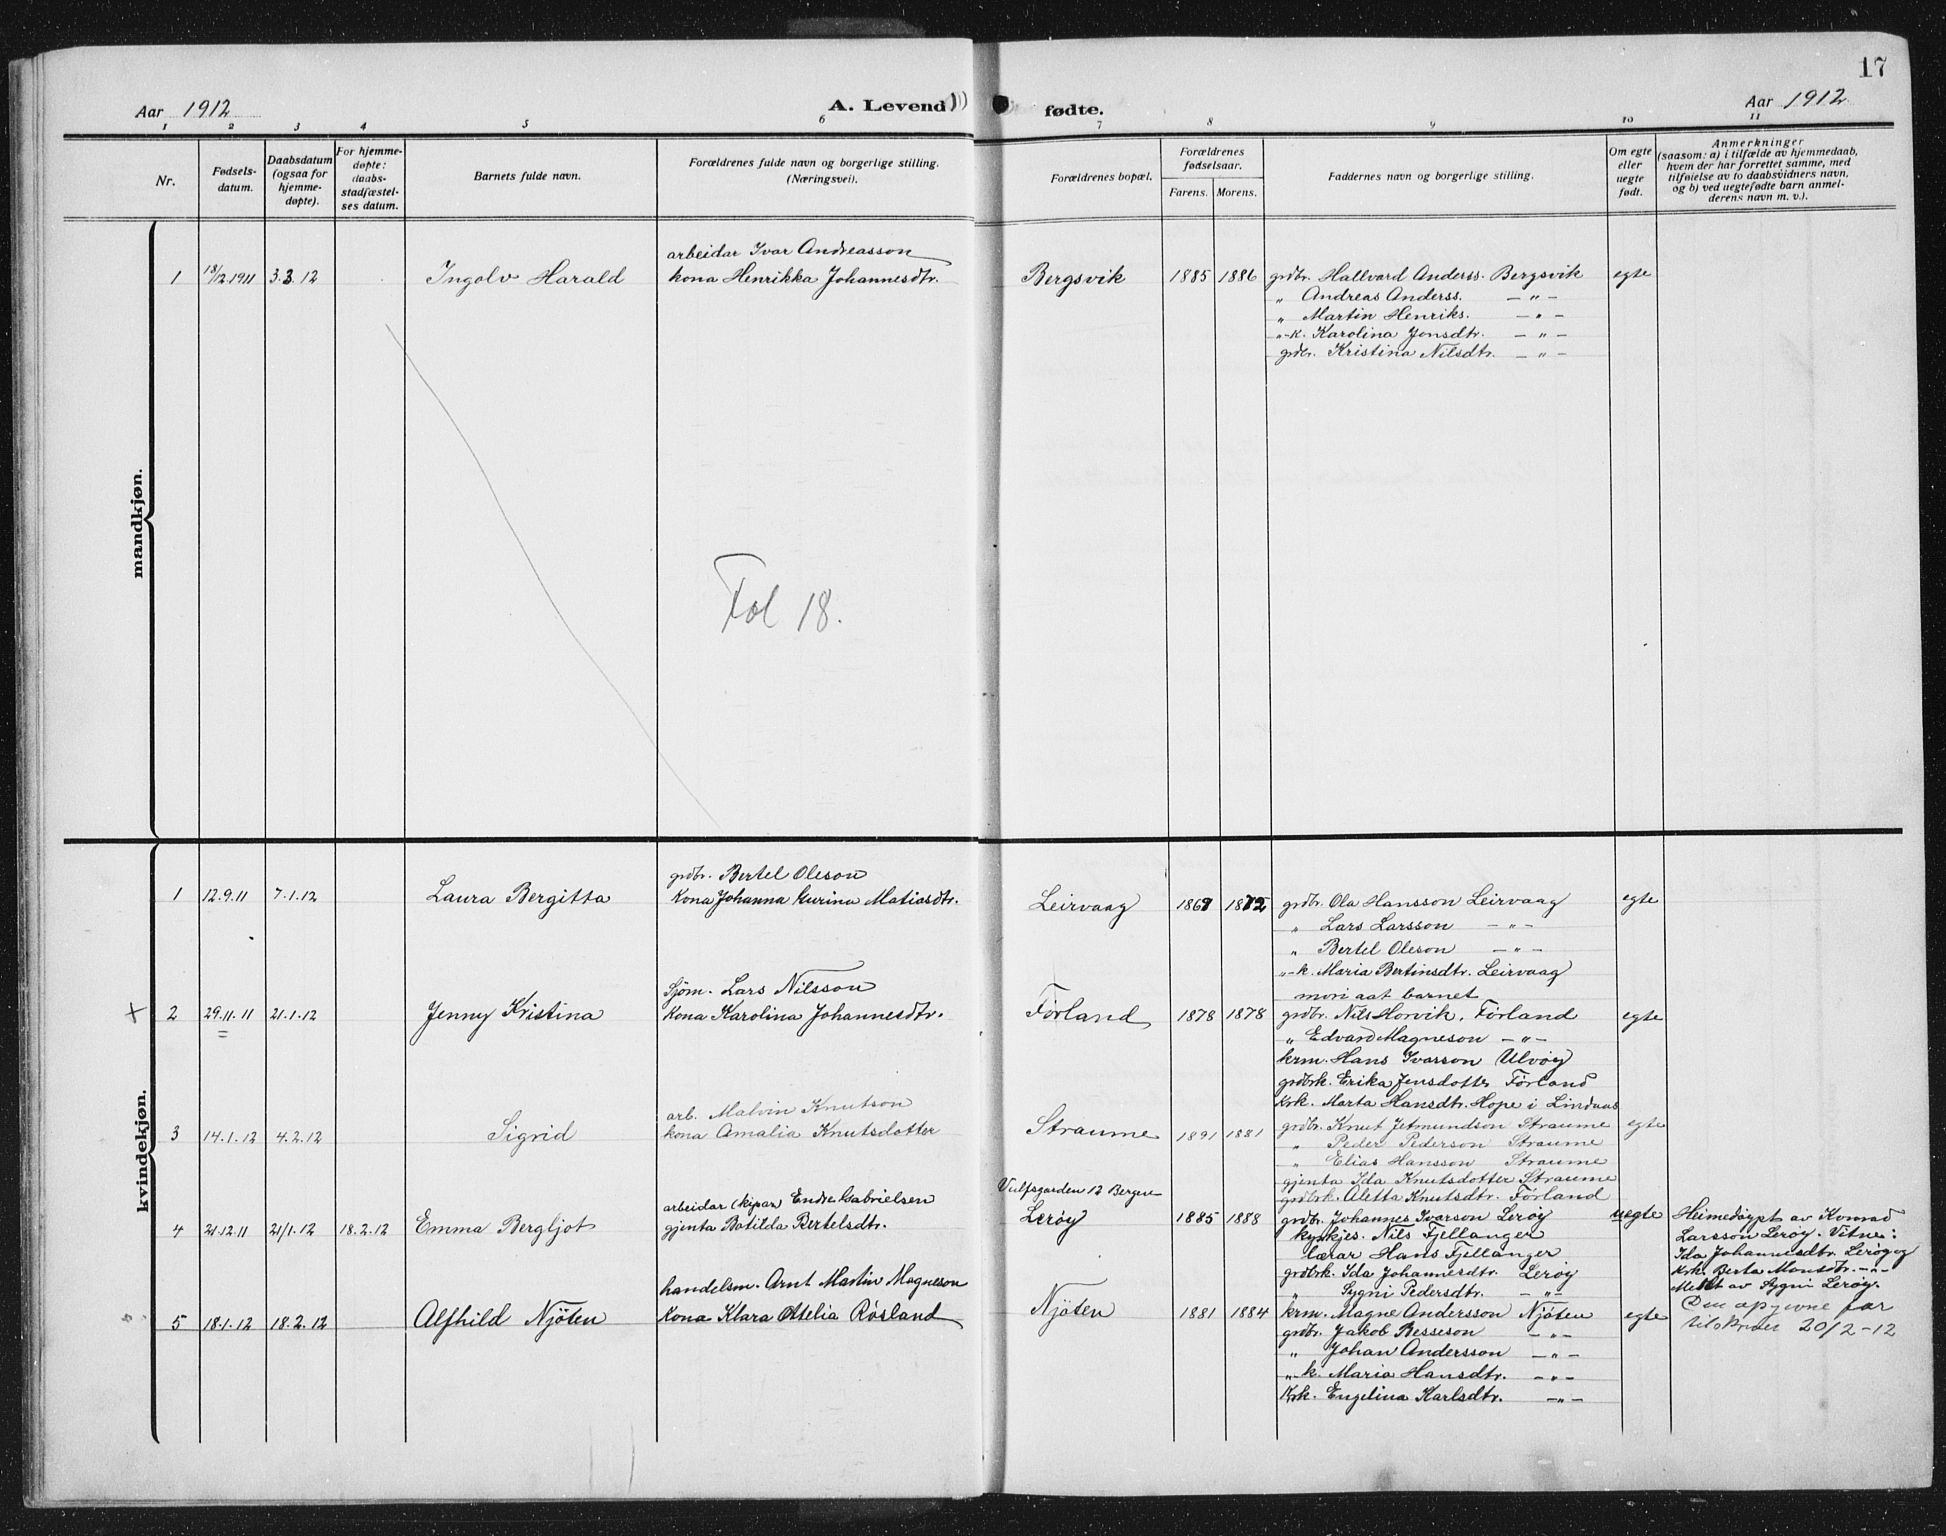 17
Aar 1912
A. Levend
fødte.
Aar 1912
1 2 3 4 5 6 7 8 9 10 11
Nr.
Fødsels-
datum.
Daabsdatum
(ogsaa for
hjemme-
døpte).
For hjemme-
døpte:
daabs-
stadfæstel-
ses datum.
Barnets fulde navn.
Forældrenes fulde navn og borgerlige stilling.
(Næringsvei).
Forældrenes bopæl.
Forældrenes
fødselsaar.
Farens. Morens.
Faddernes navn og borgerlige stilling.
Om egte
eller
uegte
født.
Anmerkninger
(saasom: a) i tilfælde av hjemmedaab,
hvem der har forrettet samme, med
tilføielse av to daabsvidners navn,
og b) ved uegtefødte barn anmel-
derens navn m. v.).
mandkjøn.
arbeidar Ivar Andreasson
1 18/12.1911 3.3.12 Ingolv Harald kona Henrikka Johannesdtr. Bergsvik 1885 1886 grdbr. Hallvard Anderss. Bergsvik egte
" Andreas Anderss. — " —
" Martin Henriks. — " —
"-k. Karolina Jonsdtr. — " —
grdbr. Kristina Nilsdtr. — " —
Fol 18.
kvindekjøn.
grdbr. Bertel Oleson
1 12.9.11 7.1.12 Laura Bergitta kona Johanna Kurina Matiasdtr. Leirvaag grdbr. Ola Hansson Leirvaag egte
" Lars Larsson — " —
" Bertel Oleson — " —
"-k. Maria Bertinsdtr. Leirvaag
mori aat barnet
Sjöm. Lars Nilsson
2 29.11.11 21.1.12 Jenny Kristina Kona Karolina Johannesdtr. Förland 1878 1878 grdbr. Nils Horvik, Förland egte
" Edvard Magneson — " —
krm. Hans Ivarson Ulvöy
grdbrk. Erika Jensdotter Förland
Krk. Marta Hansdtr. Hope i Lindaas
arb. Malvin Knutson
3 14.1.12 4.2.12 Sigrid kona Amalia Knutsdotter Straume 1891 1881 grdbr. Knut Jetmundson Straume egte
" Peder Pederson Straume
" Elias Hansson Straume
gjenta Ida Knutsdotter Straume
grdbrk. Aletta Knutsdtr. Förland
arbeidar (kipar) Endre Gabrielsen Vulfsgarden 12 Bergen
4 21.12.11 21/1.12 18.2.12 Emma Bergljot gjenta Batilda Bertelsdtr. Leröy 1885 1888 grdbr. Johannes Ivarson Leröy uegte
kyrkjes. Nils Fjellanger
lærar Hans Fjellanger
grdbrk. Ida Johannesdtr. Leröy
" Sygni Pedersdtr. — " —
Heimedöypt av Konrad
Larsson Leröy. Vitne:
Ida Johannesdtr. Leröy og
Krk. Berta Monsdtr. — " —
Meldt av Sygni Leröy.
Den opgivne far
tilskrevet 20/2-12
handelsm. Arnt Martin Magneson
5 18.1.12 18.2.12 Alfhild Njöten Kona Klara Otelia Rösland Njöten 1881 1884 krm. Magne Andersson Njöten egte
grdbr. Jakob Besseson — " —
" Johan Andersson — " —
"-k. Maria Hansdtr. — " —
Krk. Engelina Karlsdtr. — " —